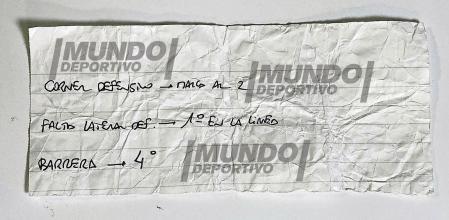 MUNDO
DEPORTIVO
CORNER DEFENSIVO → MARCO AL 2
MUNDO
DEPORTIVO
FALTA LATERAL DEF. → 1º EN LA LINEA
BARRERA → 4º
MUNDO
DEPORTIVO